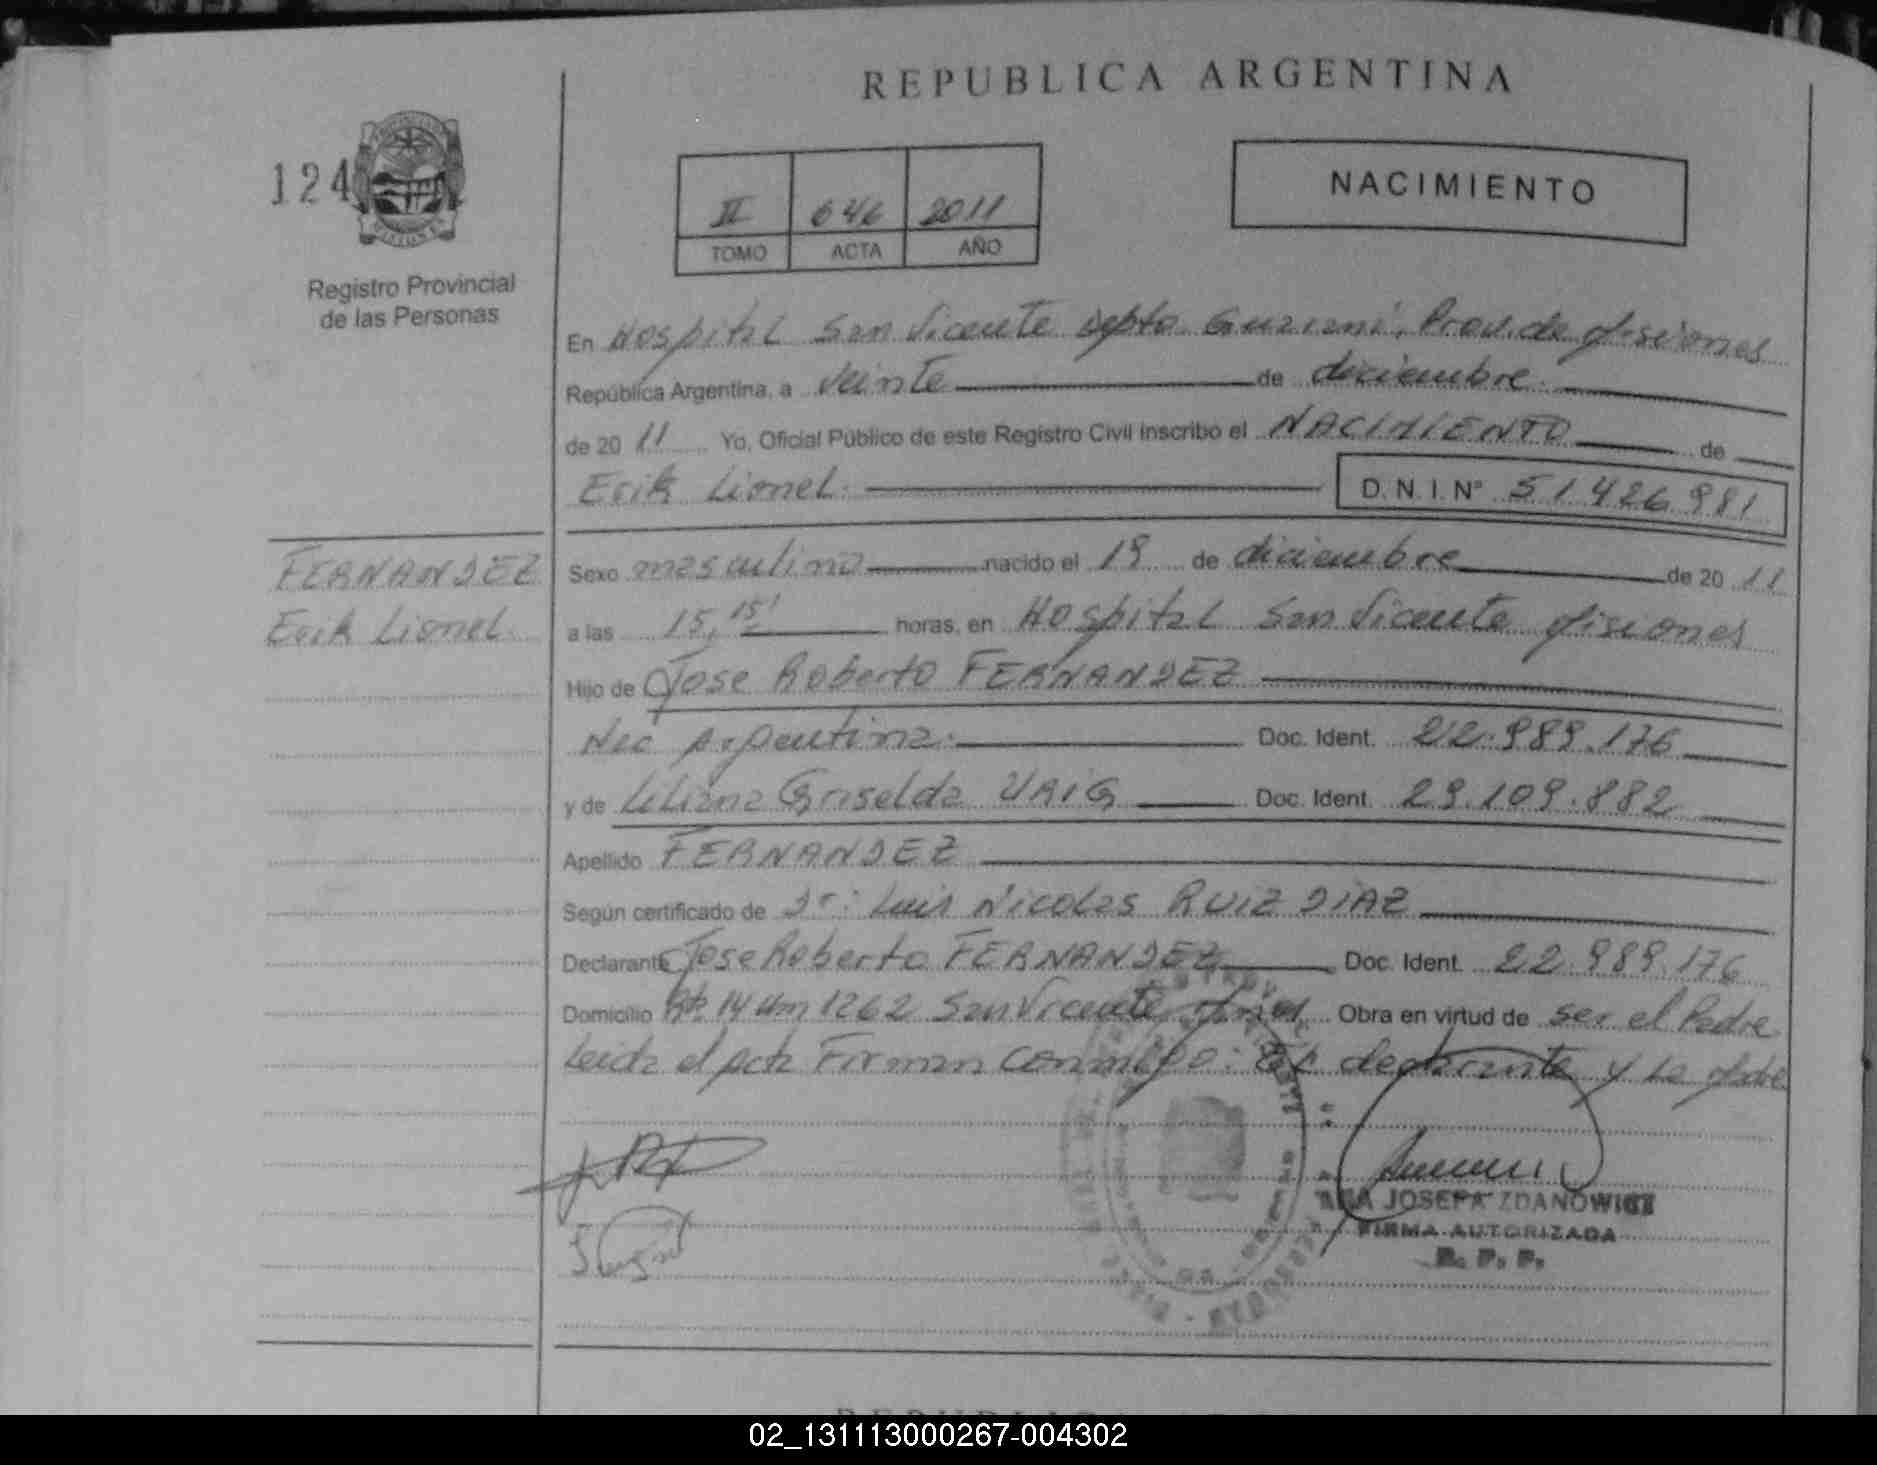 REPUBLICA ARGENTINA
124
Registro Provincial
de las Personas
II 646 2011
TOMO ACTA AÑO
NACIMIENTO
En Hospital San Vicente Depto Guarani, Prov. de Misiones
República Argentina, a Veinte de diciembre
de 20 11 Yo, Oficial Público de este Registro Civil inscribo el NACIMIENTO de
Erik Lionel D.N.I. Nº 51.426.981
FERNANDEZ
Erik Lionel
Sexo masculino nacido el 19 de diciembre de 20 11
a las 15,15' horas, en Hospital San Vicente Misiones
Hijo de Jose Roberto FERNANDEZ
Nac Argentina. Doc. Ident. 22.989.176
y de Liliana Griselda URIG Doc. Ident. 29.109.882
Apellido FERNANDEZ
Según certificado de Dr: Luis Nicolas RUIZ DIAZ
Declarante Jose Roberto FERNANDEZ Doc. Ident. 22.989.176
Domicilio Rta. 14 Km 1262 San Vicente Mnes. Obra en virtud de ser el Padre
Leida el Acta Firman conmigo: El declarante y La Madre
JOSEFA ZDANOWICZ
FIRMA AUTORIZADA
R. P. P.
02_131113000267-004302